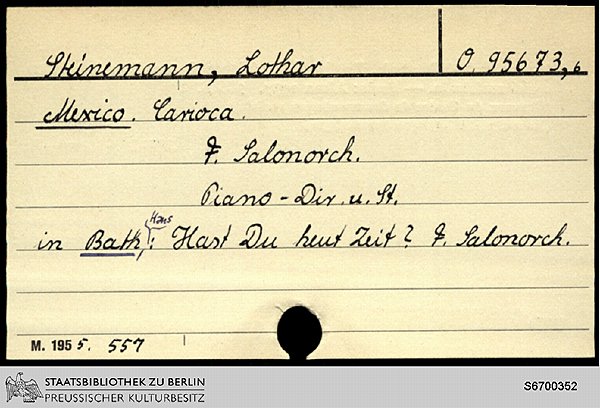 Steinemann, Lothar O. 95673,6
Mexico. Carioca.
F. Salonorch.
Piano-Dir. u. St.
in Bath, Hans: Hast Du heut Zeit? F. Salonorch.
M. 195 5. 557
STAATSBIBLIOTHEK ZU BERLIN
PREUSSISCHER KULTURBESITZ
S6700352